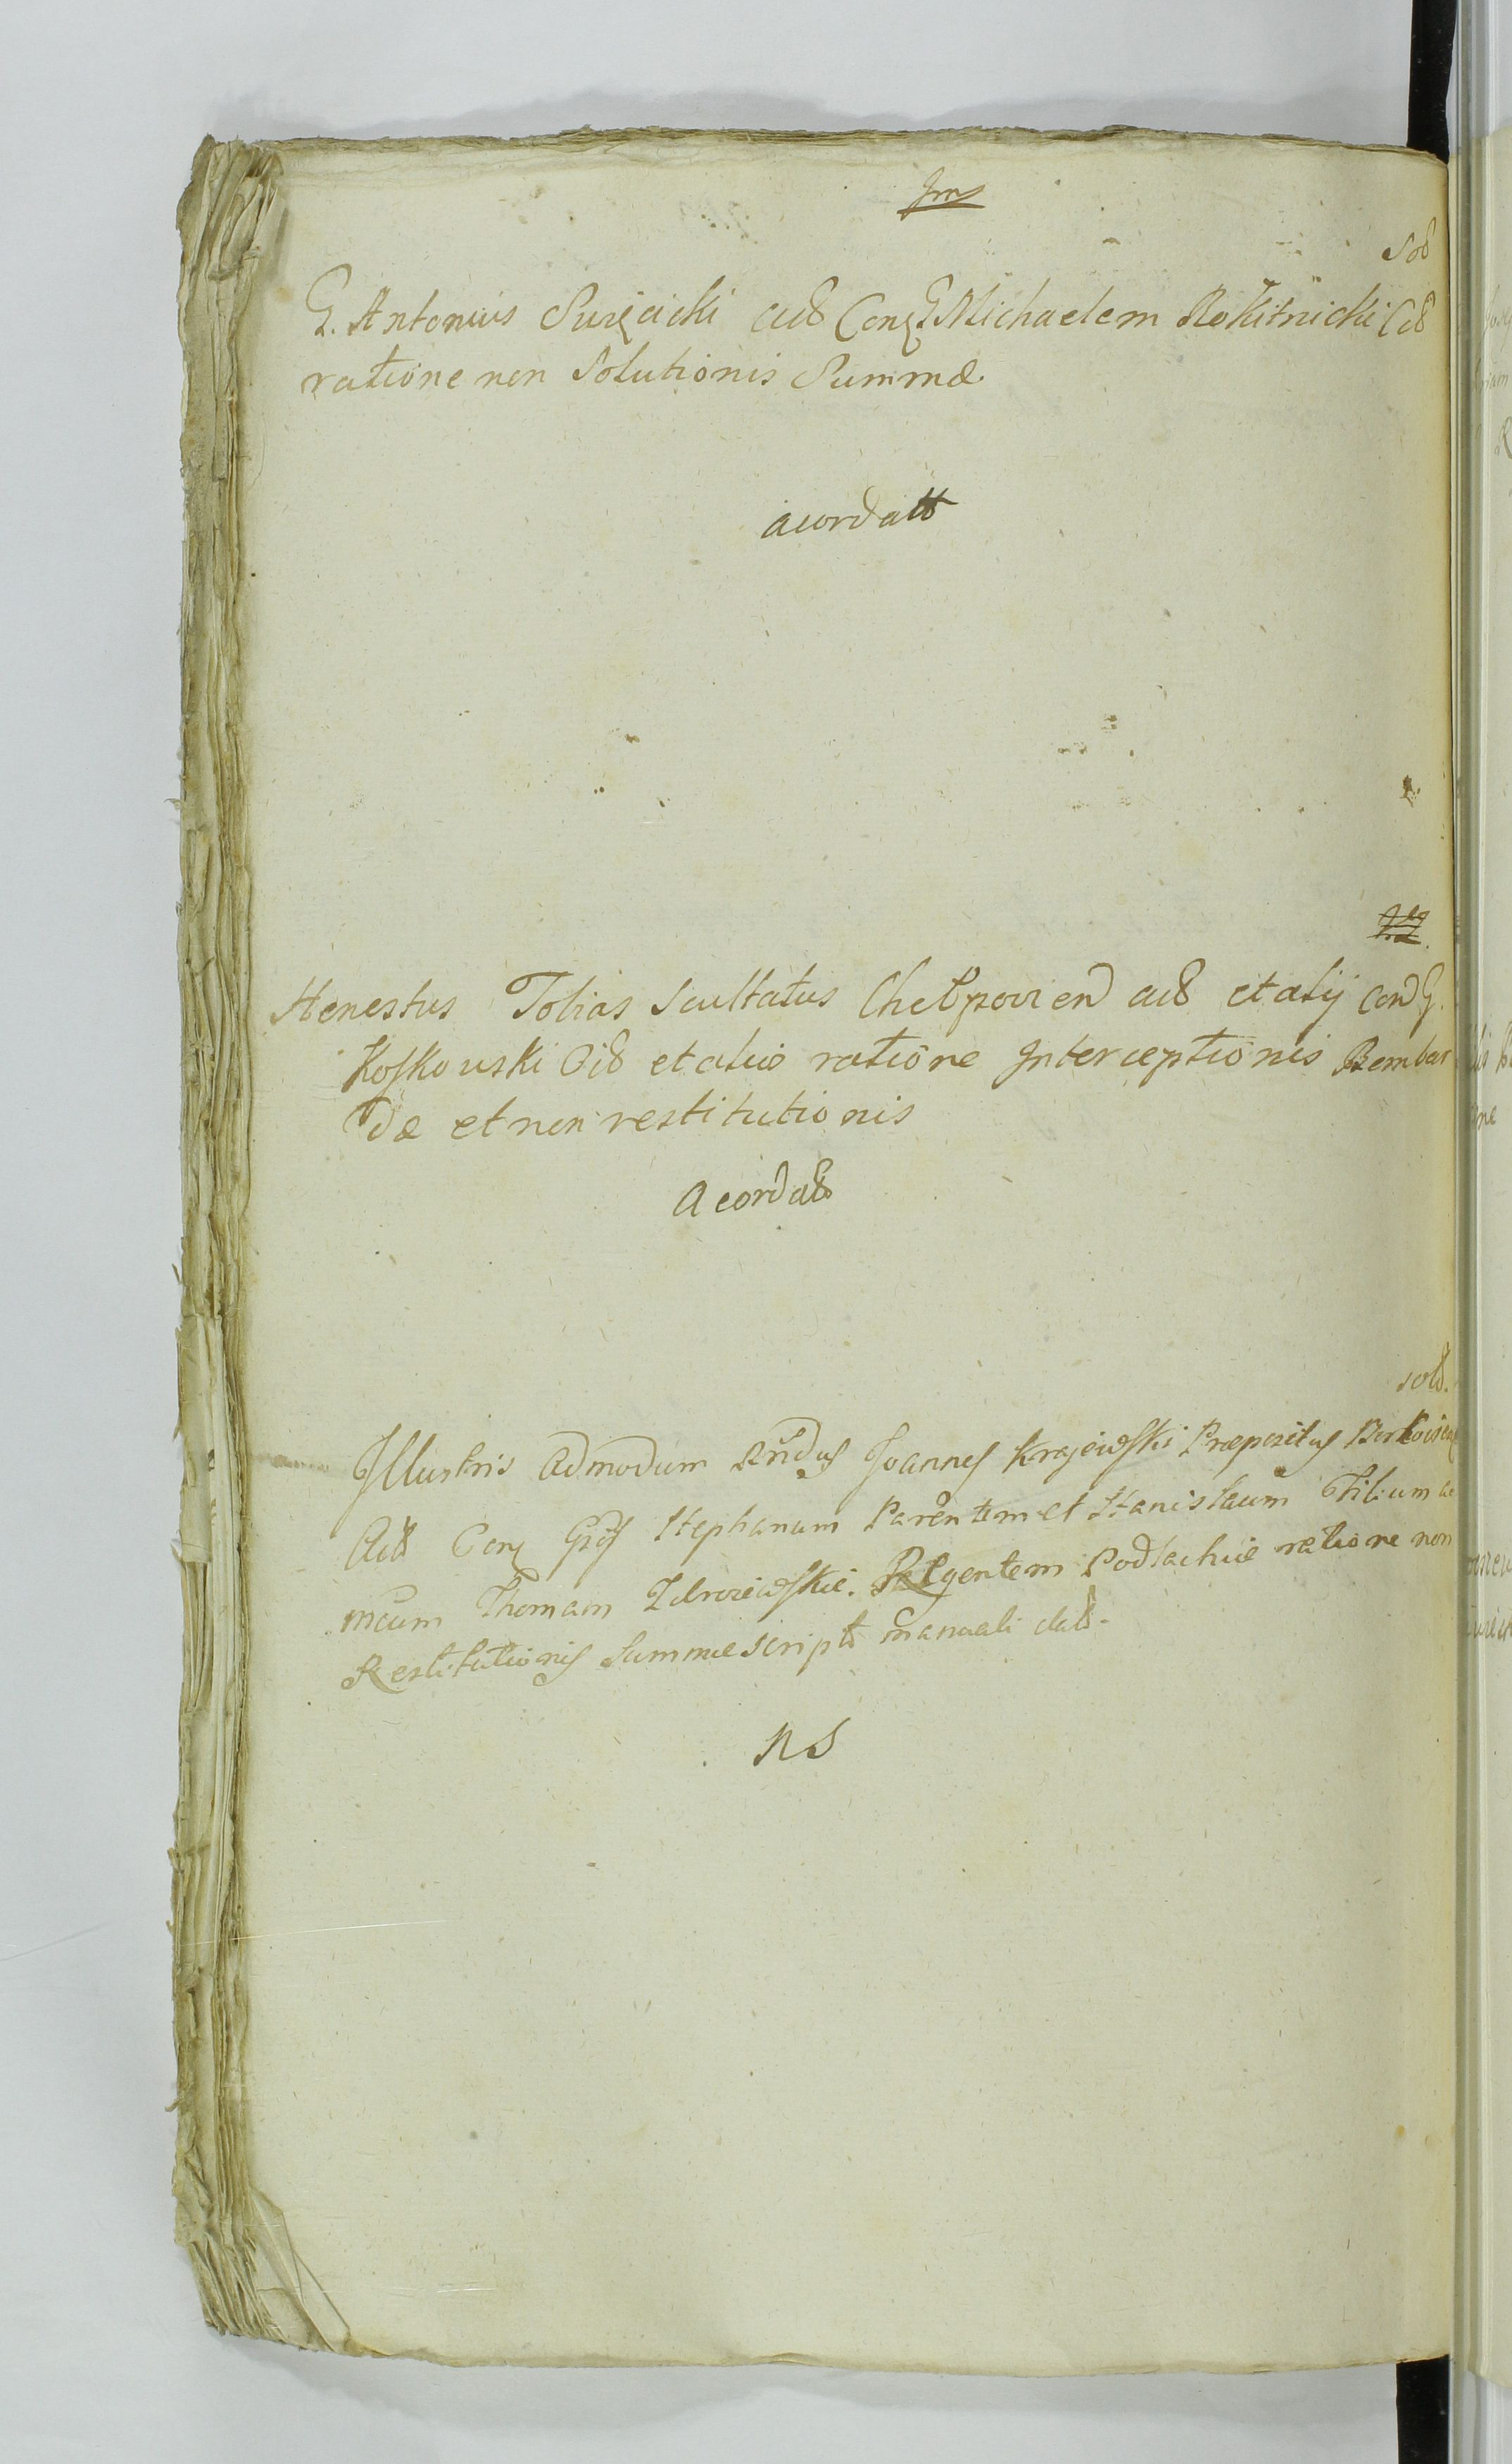 Sol
G. Antonius Surzicki act Conq G. Michaelem Rokitnicki Cit
ratione non Solutionis Summæ.
acordatt
Honestus Tobias Scultatus Chelpovien act et alij con G.
Koskouski Cit et alios ratione Interceptionis Bembar
dæ et non restitutionis
Acordatt
solt.
Illustris Admodum Rndus Joannes Krajewski Præpositus
Act Conq Gros Stephanum Parentem et Stanislaum Filium ac
mcum Thomam Regentem Podlachiæ ratione non
Restitutionis Summæ script manuali dat.
NS